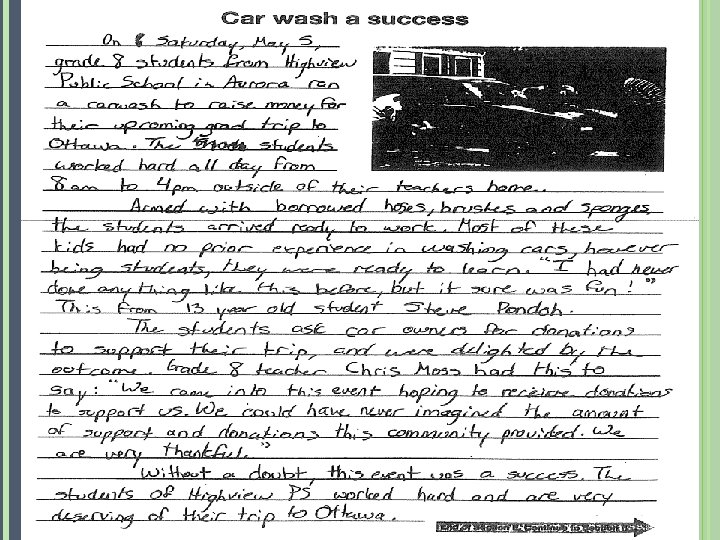 Car wash a success
On Saturday, May 5,
grade 8 students from Highview
Public School in Aurora ran
a carwash to raise money for
their upcoming grad trip to
Ottawa. The students
worked hard all day from
8am to 4pm outside of their teachers home.
Armed with borrowed hoses, brushes and sponges,
the students arrived ready to work. Most of these
kids had no prior experience in washing cars, however
being students, they were ready to learn. "I had never
done anything like this before, but it sure was fun!"
This from 13 year old student Steve Pondoh.
The students ask car owners for donations
to support their trip, and were delighted by the
outcome. Grade 8 teacher Chris Moss had this to
say: "We came into this event hoping to receive donations
to support us. We could have never imagined the amount
of support and donations this community provided. We
are very thankful."
Without a doubt, this event was a success. The
students of Highview PS worked hard and are very
deserving of their trip to Ottawa.
End of Section Continue to Section